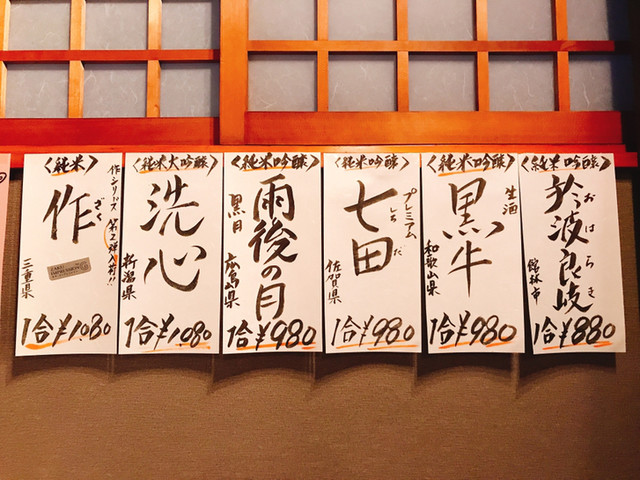 <純米>
作シリーズ 第2弾入荷!!
作
ざく
三重県
1合¥1,080
<純米大吟醸>
洗心
新潟県
1合¥1,080
<純米吟醸>
雨後の月
黒月
広島県
1合¥980
<純米吟醸>
プレミアム
七田
しちだ
佐賀県
1合¥980
<純米吟醸>
生酒
黒牛
和歌山県
1合¥980
<純米吟醸>
おはらき
波良岐
館林市
1合¥880